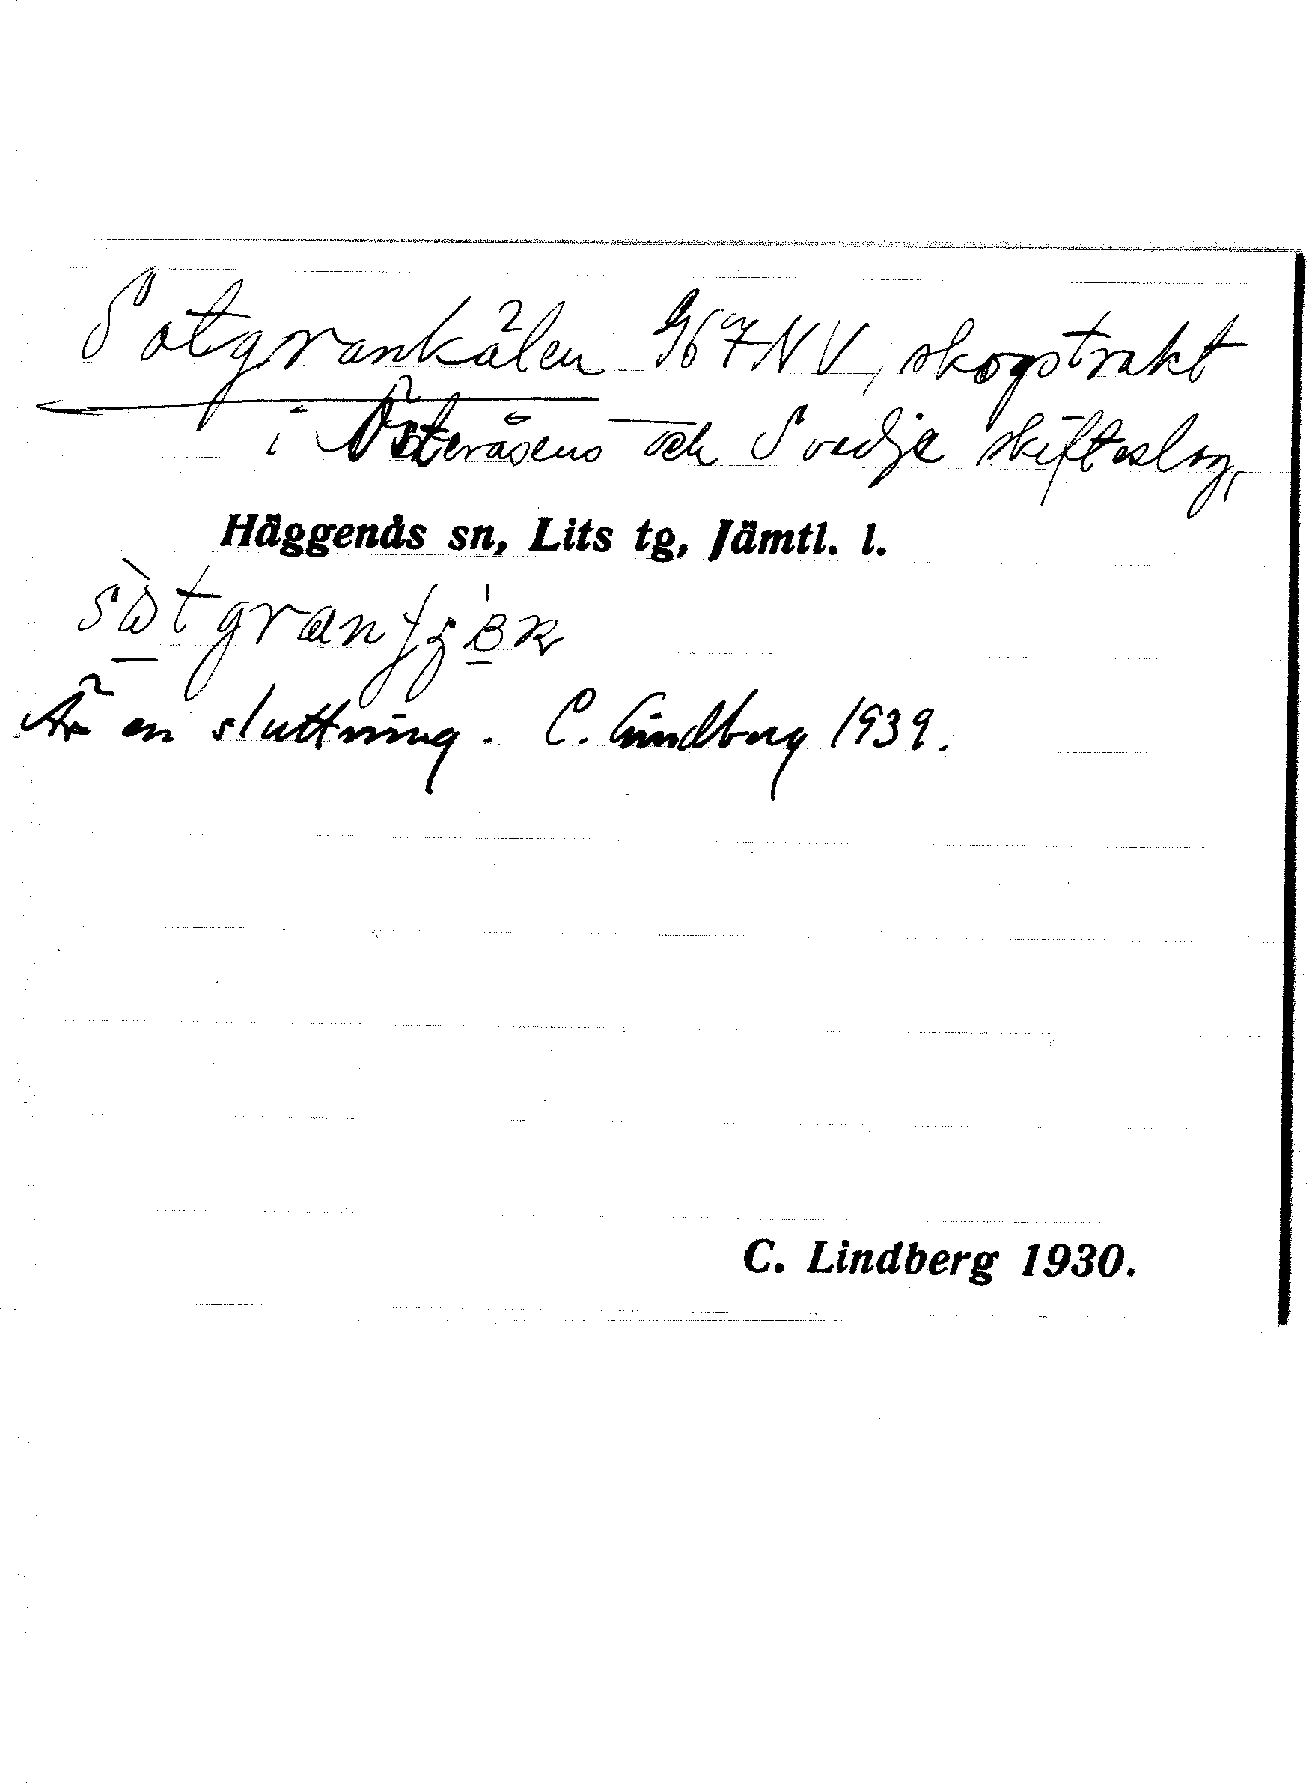 Sotgrankälen 967NV, skogstrakt
i Österåsens och Svedje skifteslag,
Häggenås sn, Lits tg, Jämtl. l.
Är en sluttning. C. Lindberg 1939.
C. Lindberg 1930.